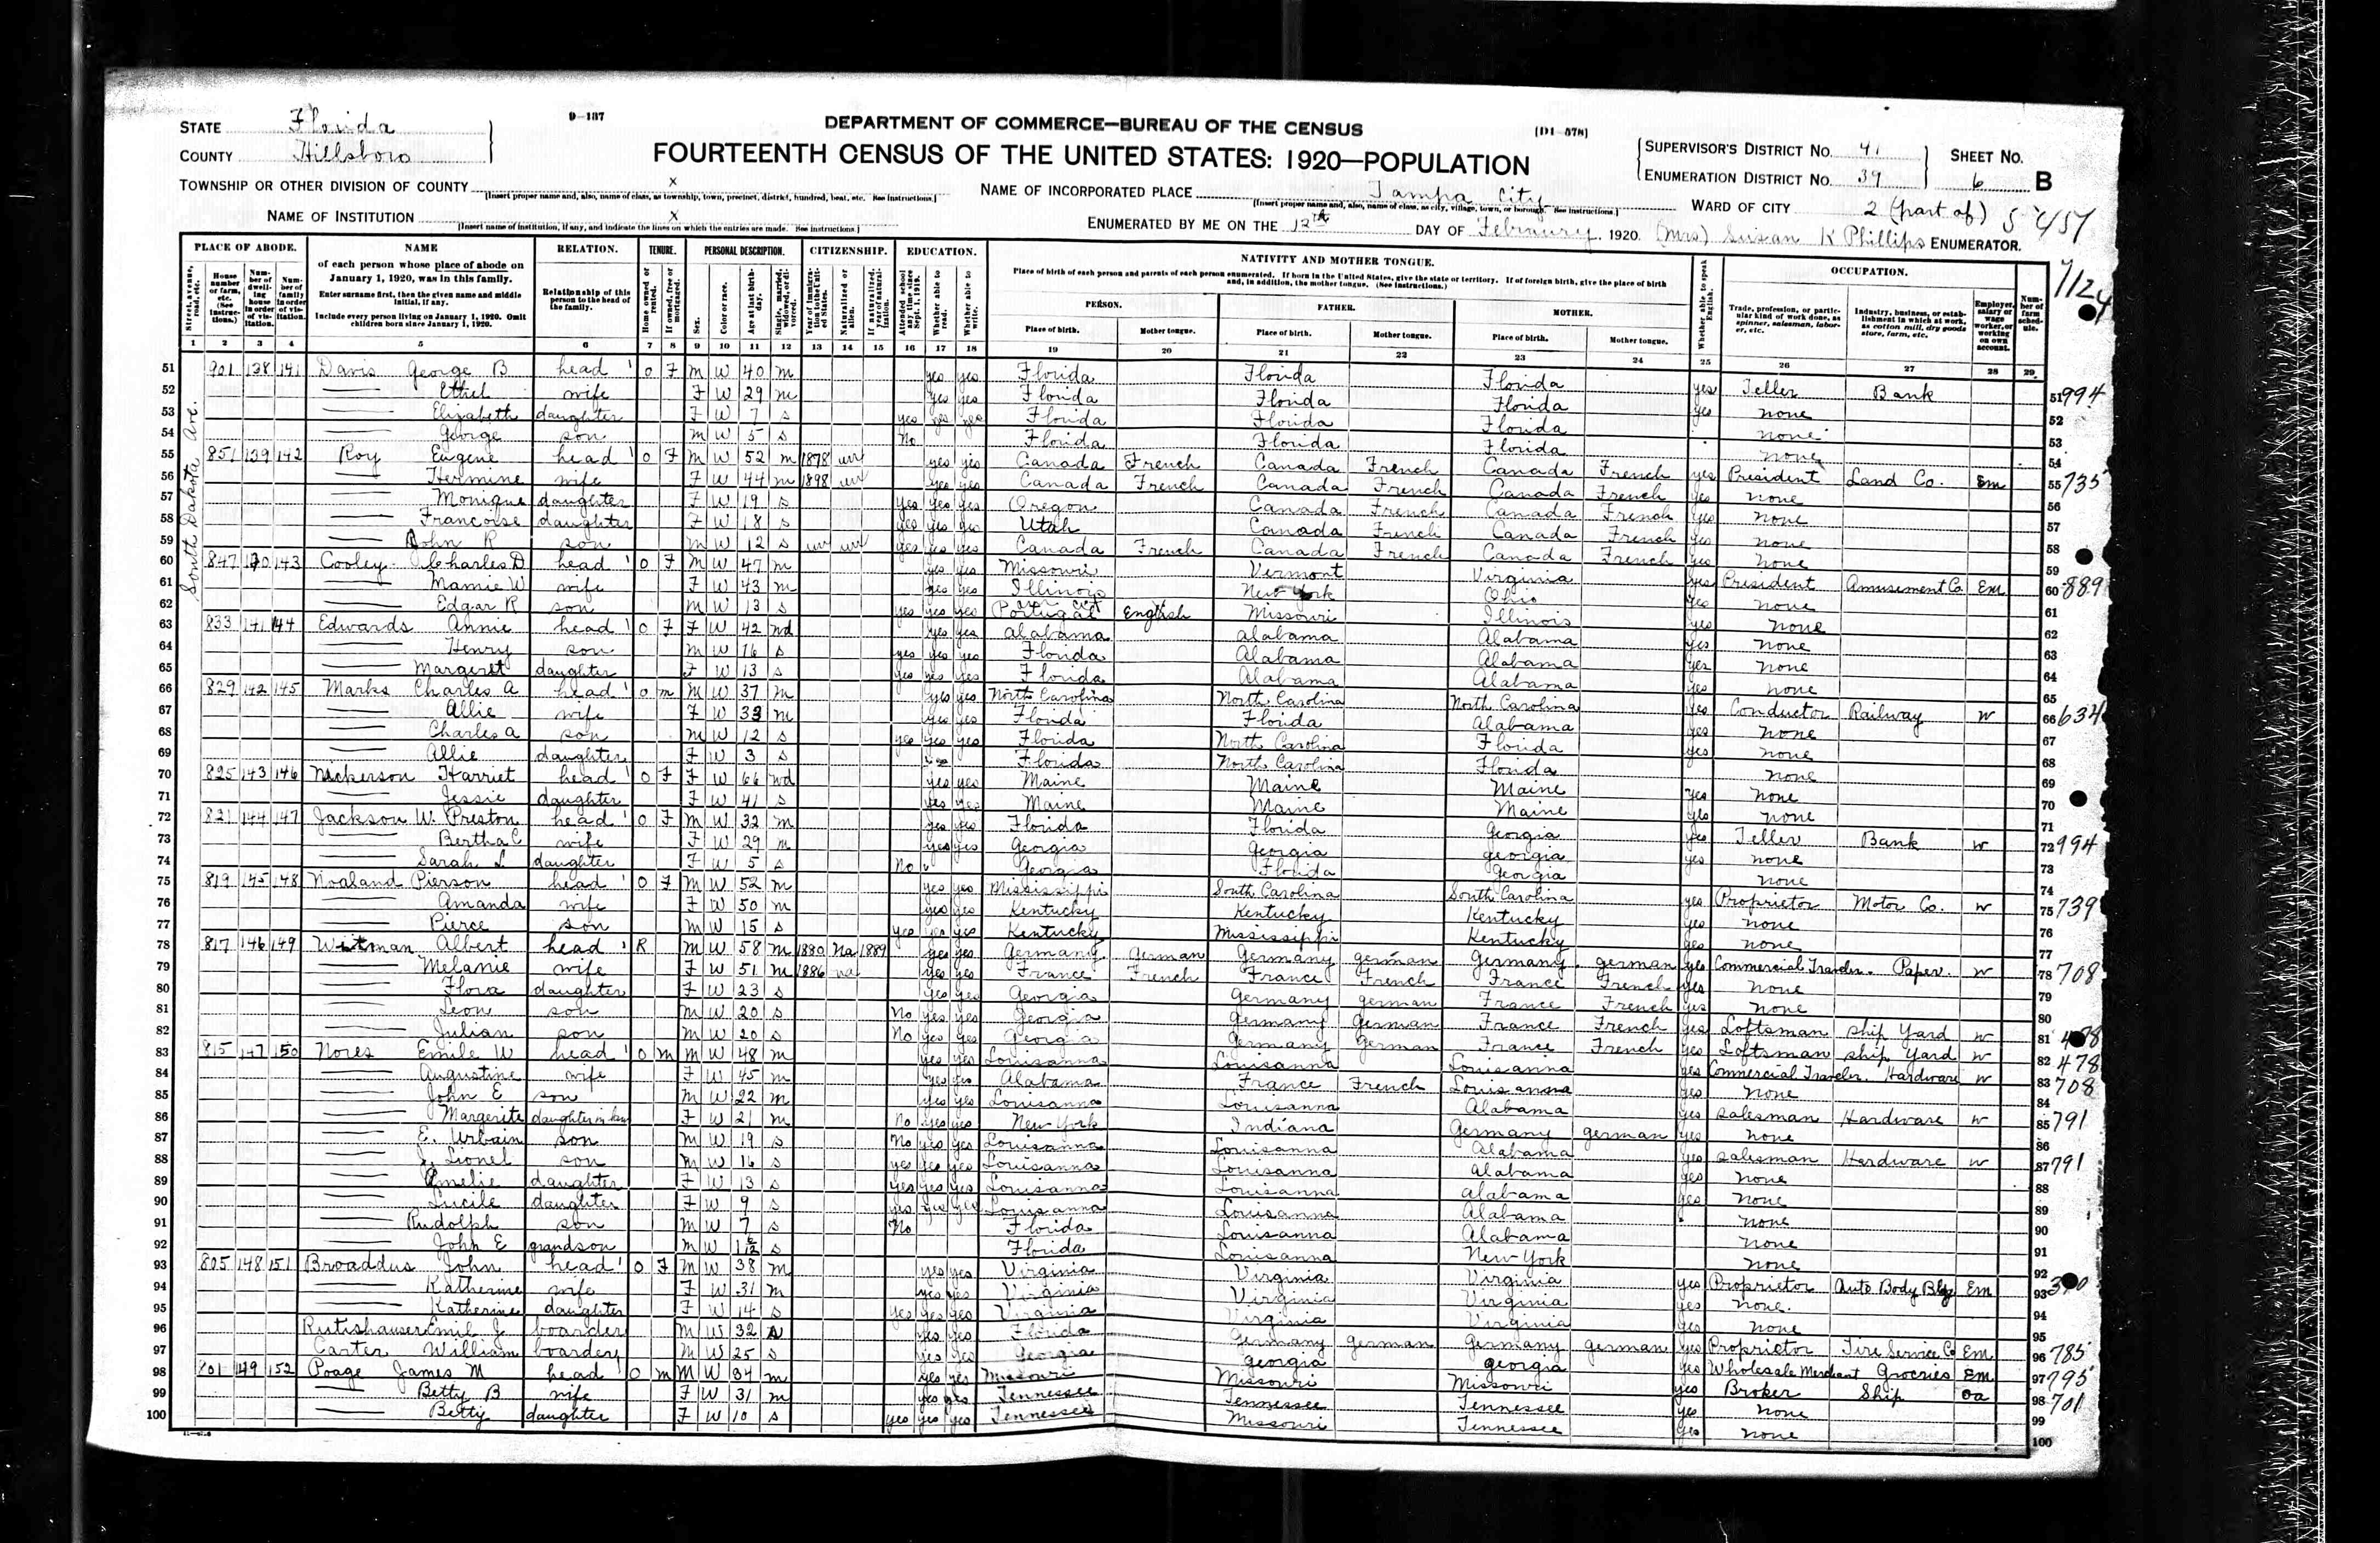 STATE Florida
COUNTY Hillsboro
9-187
DEPARTMENT OF COMMERCE—BUREAU OF THE CENSUS
[D1-578]
FOURTEENTH CENSUS OF THE UNITED STATES: 1920—POPULATION
SUPERVISOR'S DISTRICT NO. 41
ENUMERATION DISTRICT NO. 39
SHEET NO. 6 B
TOWNSHIP OR OTHER DIVISION OF COUNTY x
[Insert proper name and, also, name of class, as township, town, precinct, district, hundred, beat, etc. See instructions.]
NAME OF INCORPORATED PLACE Tampa City
[Insert proper name and, also, name of class, as city, village, town, or borough. See instructions.]
WARD OF CITY 2 (part of)
NAME OF INSTITUTION x
[Insert name of institution, if any, and indicate the lines on which the entries are made. See instructions.]
ENUMERATED BY ME ON THE 12th DAY OF February, 1920. (Mrs) Susan K Phillips ENUMERATOR.
PLACE OF ABODE. NAME RELATION. TENURE. PERSONAL DESCRIPTION. CITIZENSHIP. EDUCATION. NATIVITY AND MOTHER TONGUE. OCCUPATION.
of each person whose place of abode on January 1, 1920, was in this family.
Enter surname first, then the given name and middle initial, if any.
Include every person living on January 1, 1920. Omit children born since January 1, 1920.
Relationship of this person to the head of the family.
Place of birth of each person and parents of each person enumerated. If born in the United States, give the state or territory. If of foreign birth, give the place of birth and, in addition, the mother tongue. (See instructions.)
PERSON. FATHER. MOTHER.
Place of birth. Mother tongue. Place of birth. Mother tongue. Place of birth. Mother tongue.
1 2 3 4 5 6 7 8 9 10 11 12 13 14 15 16 17 18 19 20 21 22 23 24 25 26 27 28 29
South Dakota Ave.
51 901 138 141 Davis George B head O F M W 40 m yes yes Florida Florida Florida yes Teller Bank 994
52 Ethel wife F W 29 m yes yes Florida Florida Florida yes none
53 Elizabeth daughter F W 7 s yes yes yes Florida Florida Florida none
54 George son M W 5 s No Florida Florida Florida none
55 851 139 142 Roy Eugene head O F M W 52 m 1878 un yes yes Canada French Canada French Canada French yes President Land Co. Em 735
56 Hermine wife F W 44 m 1898 un yes yes Canada French Canada French Canada French yes none
57 Monique daughter F W 19 s yes yes yes Oregon Canada French Canada French yes none
58 Francoise daughter F W 18 s yes yes yes Utah Canada French Canada French yes none
59 John R son M W 12 s un un yes yes yes Canada French Canada French Canada French yes none
60 847 140 143 Cooley Charles D head O F M W 47 m yes yes Missouri Vermont Virginia yes President Amusement Co. Em 889
61 Mamie W wife F W 43 m yes yes Illinois New York Ohio yes none
62 Edgar R son M W 13 s yes yes yes Portugal English Missouri Illinois yes none
63 833 141 144 Edwards Annie head O F F W 42 wd yes yes Alabama Alabama Alabama yes none
64 Henry son M W 16 s yes yes yes Florida Alabama Alabama yes none
65 Margeret daughter F W 13 s yes yes yes Florida Alabama Alabama yes none
66 829 142 145 Marks Charles A head O m M W 37 m yes yes North Carolina North Carolina North Carolina yes Conductor Railway W 634
67 Allie wife F W 33 m yes yes Florida Florida Alabama yes none
68 Charles A son M W 12 s yes yes yes Florida North Carolina Florida yes none
69 Allie daughter F W 3 s Florida North Carolina Florida none
70 825 143 146 Nickerson Harriet head O F F W 66 wd yes yes Maine Maine Maine yes none
71 Jessie daughter F W 41 s yes yes Maine Maine Maine yes none
72 821 144 147 Jackson W. Preston head O F M W 32 m yes yes Florida Florida Georgia yes Teller Bank W 994
73 Bertha C wife F W 29 m yes yes Georgia Georgia Georgia yes none
74 Sarah L daughter F W 5 s No Georgia Florida Georgia none
75 819 145 148 Noaland Pierson head O F M W 52 m yes yes Mississippi South Carolina South Carolina yes Proprietor Motor Co. W 739
76 Amanda wife F W 50 m yes yes Kentucky Kentucky Kentucky yes none
77 Pierce son M W 15 s yes yes yes Kentucky Mississippi Kentucky yes none
78 817 146 149 Witman Albert head R M W 58 m 1880 Na 1889 yes yes Germany German Germany german Germany german yes Commercial Traveler. Paper. W 708
79 Melanie wife F W 51 m 1886 na yes yes France French France French France French yes none
80 Flora daughter F W 23 s yes yes Georgia Germany german France French yes none
81 Leon son M W 20 s No yes yes Georgia Germany German France French yes Loftsman Ship Yard W 478
82 Julian son M W 20 s No yes yes Georgia Germany German France French yes Loftsman Ship Yard W 478
83 815 147 150 Nores Emile W head O m M W 48 m yes yes Louisanna Louisanna Louisanna yes Commercial Traveler. Hardware W 708
84 Augustine wife F W 45 m yes yes Alabama France French Louisanna yes none
85 John E son M W 22 m yes yes Louisanna Louisanna Alabama yes salesman Hardware W 791
86 Margerite daughter in law F W 21 m No yes yes New York Indiana Germany german yes none
87 E. Urbain son M W 19 s No yes yes Louisanna Louisanna Alabama yes salesman Hardware W 791
88 J. Lionel son M W 16 s yes yes yes Louisanna Louisanna Alabama yes none
89 Emelie daughter F W 13 s yes yes yes Louisanna Louisanna Alabama yes none
90 Lucile daughter F W 9 s yes yes yes Louisanna Louisanna Alabama none
91 Rudolph son M W 7 s No Florida Louisanna Alabama none
92 John E grandson M W s Florida Louisanna New York none
93 805 148 151 Broaddus John head O F M W 38 m yes yes Virginia Virginia Virginia yes Proprietor Auto Body Bldg Em
94 Katherine wife F W 31 m yes yes Virginia Virginia Virginia yes none.
95 Katherine daughter F W 14 s yes yes yes Virginia Virginia Virginia yes none
96 Rutishauser Emil J boarder M W 32 yes yes Florida Germany german Germany german yes Proprietor Tire Service Co Em 785
97 Carter William boarder M W 25 s yes yes Georgia Georgia Georgia yes Wholesale Merchant Groceries Em 795
98 801 149 152 Poage James M head O m M W 34 m yes yes Missouri Missouri Missouri yes Broker Ship Oa 701
99 Betty B wife F W 31 m yes yes Tennessee Tennessee Tennessee yes none
100 Betty daughter F W 10 s yes yes yes Tennessee Missouri Tennessee yes none